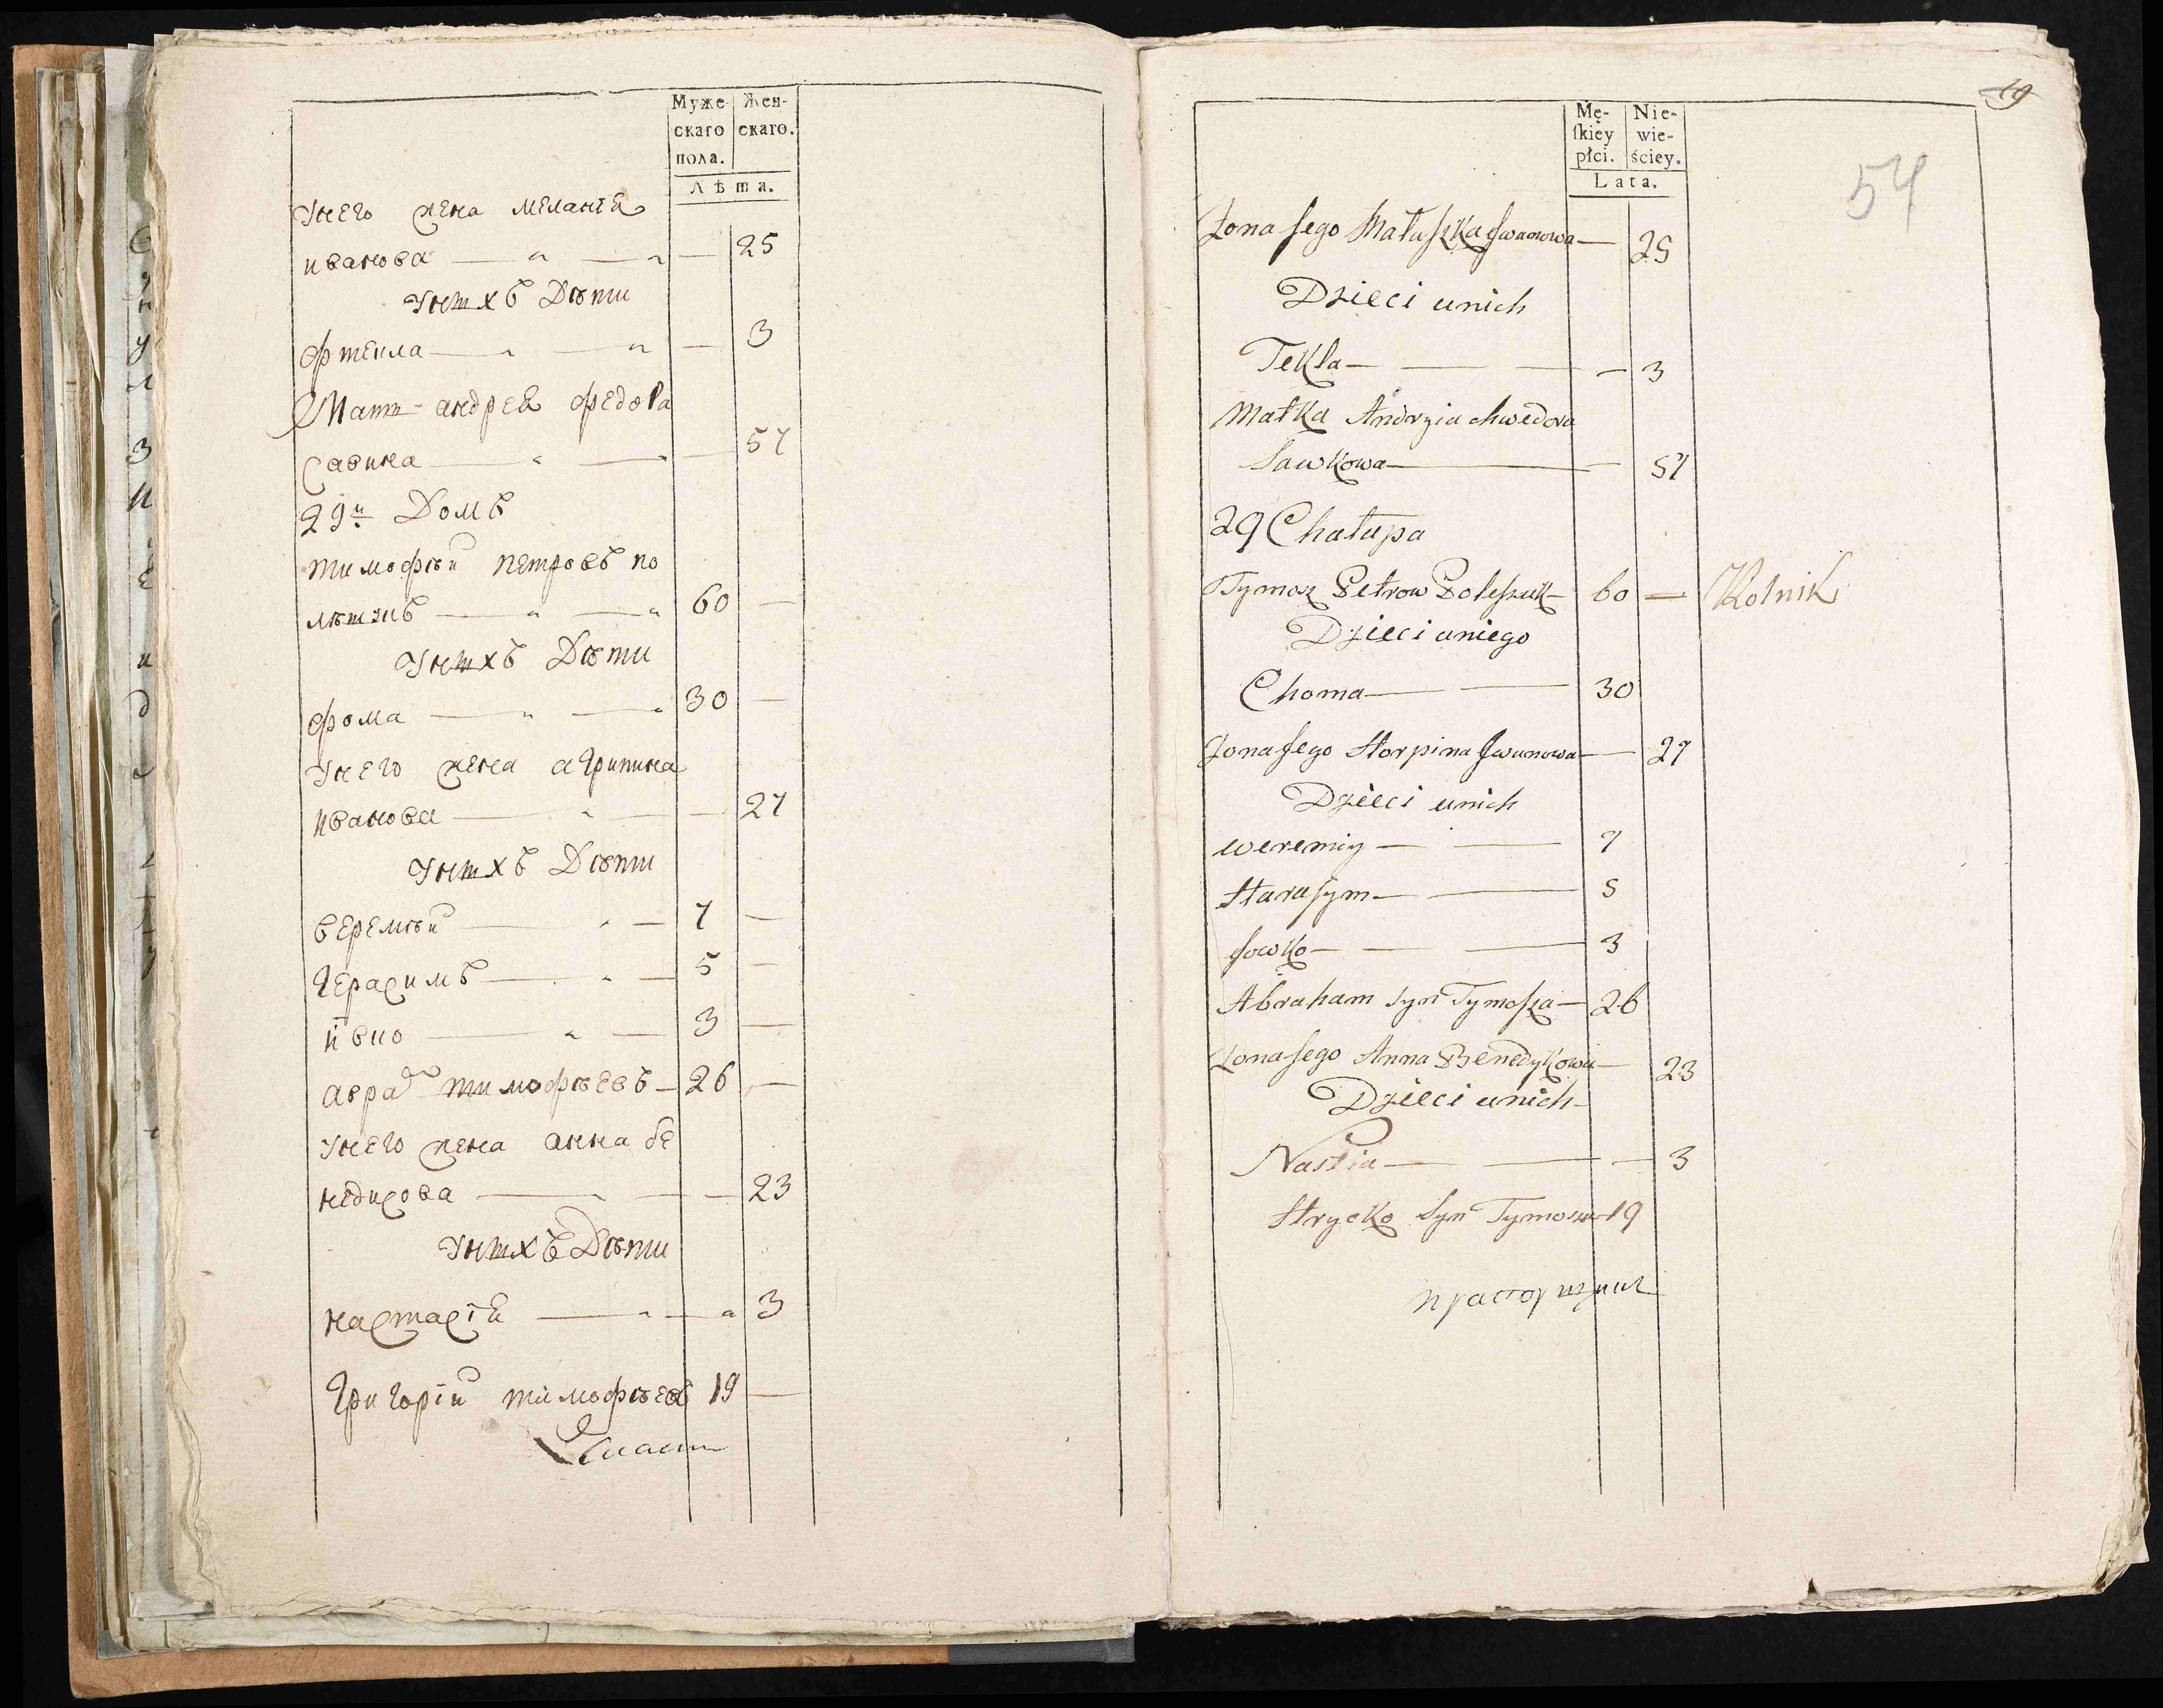 Муже- Жен-
скаго скаго.
пола.
Лѣта.
Унего жена меланія
иванова — — — 25
Унихъ Дѣти
фтекла — — — 3
Мать андрея федора
Савина — — — 57
29й Домъ
тимофѣй петровъ по
— — 60 —
Унихъ Дѣти
фома — — 30 —
Унего жена агрипина
иванова — — — 27
Унихъ Дѣти
веремѣй — — 7 —
герасимъ — — 5 —
ивко — — 3 —
аврам тимофѣевъ — 26 —
Унего жена анна бе
— — — 23
Унихъ Дѣти
настасія — — 3
григорій тимофѣевъ 19 —
19
54
Mę- Nie-
skiéy wie-
płci. ściey.
Lata.
Żona Jego Małaszka Jwanowa — 25
Dzieci unich
Tekla — — — — 3
Matka Andrzia chwedora
Sawkowa — — 57
29 Chałupa
Tymosz Petrow Poleszuk 60 — Rolnik
Dzieci uniego
Choma — — 30
Żona Jego Horpina Jwanowa — 27
Dzieci unich
weremiy — — 7
Harasym — — 5
Jowko — — — 3
Abraham syn Tymosza — 26
Żona Jego Anna Benedykowa — 23
Dzieci unich
Nastia — — — 3
Hrycko Syn Tymosza 19